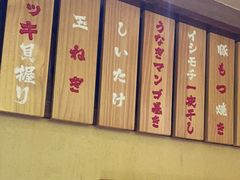 豚もつ焼き
イシモチ一夜干し
うなぎマンゴ巻き
しいたけ
玉ねぎ
ッキ貝握り